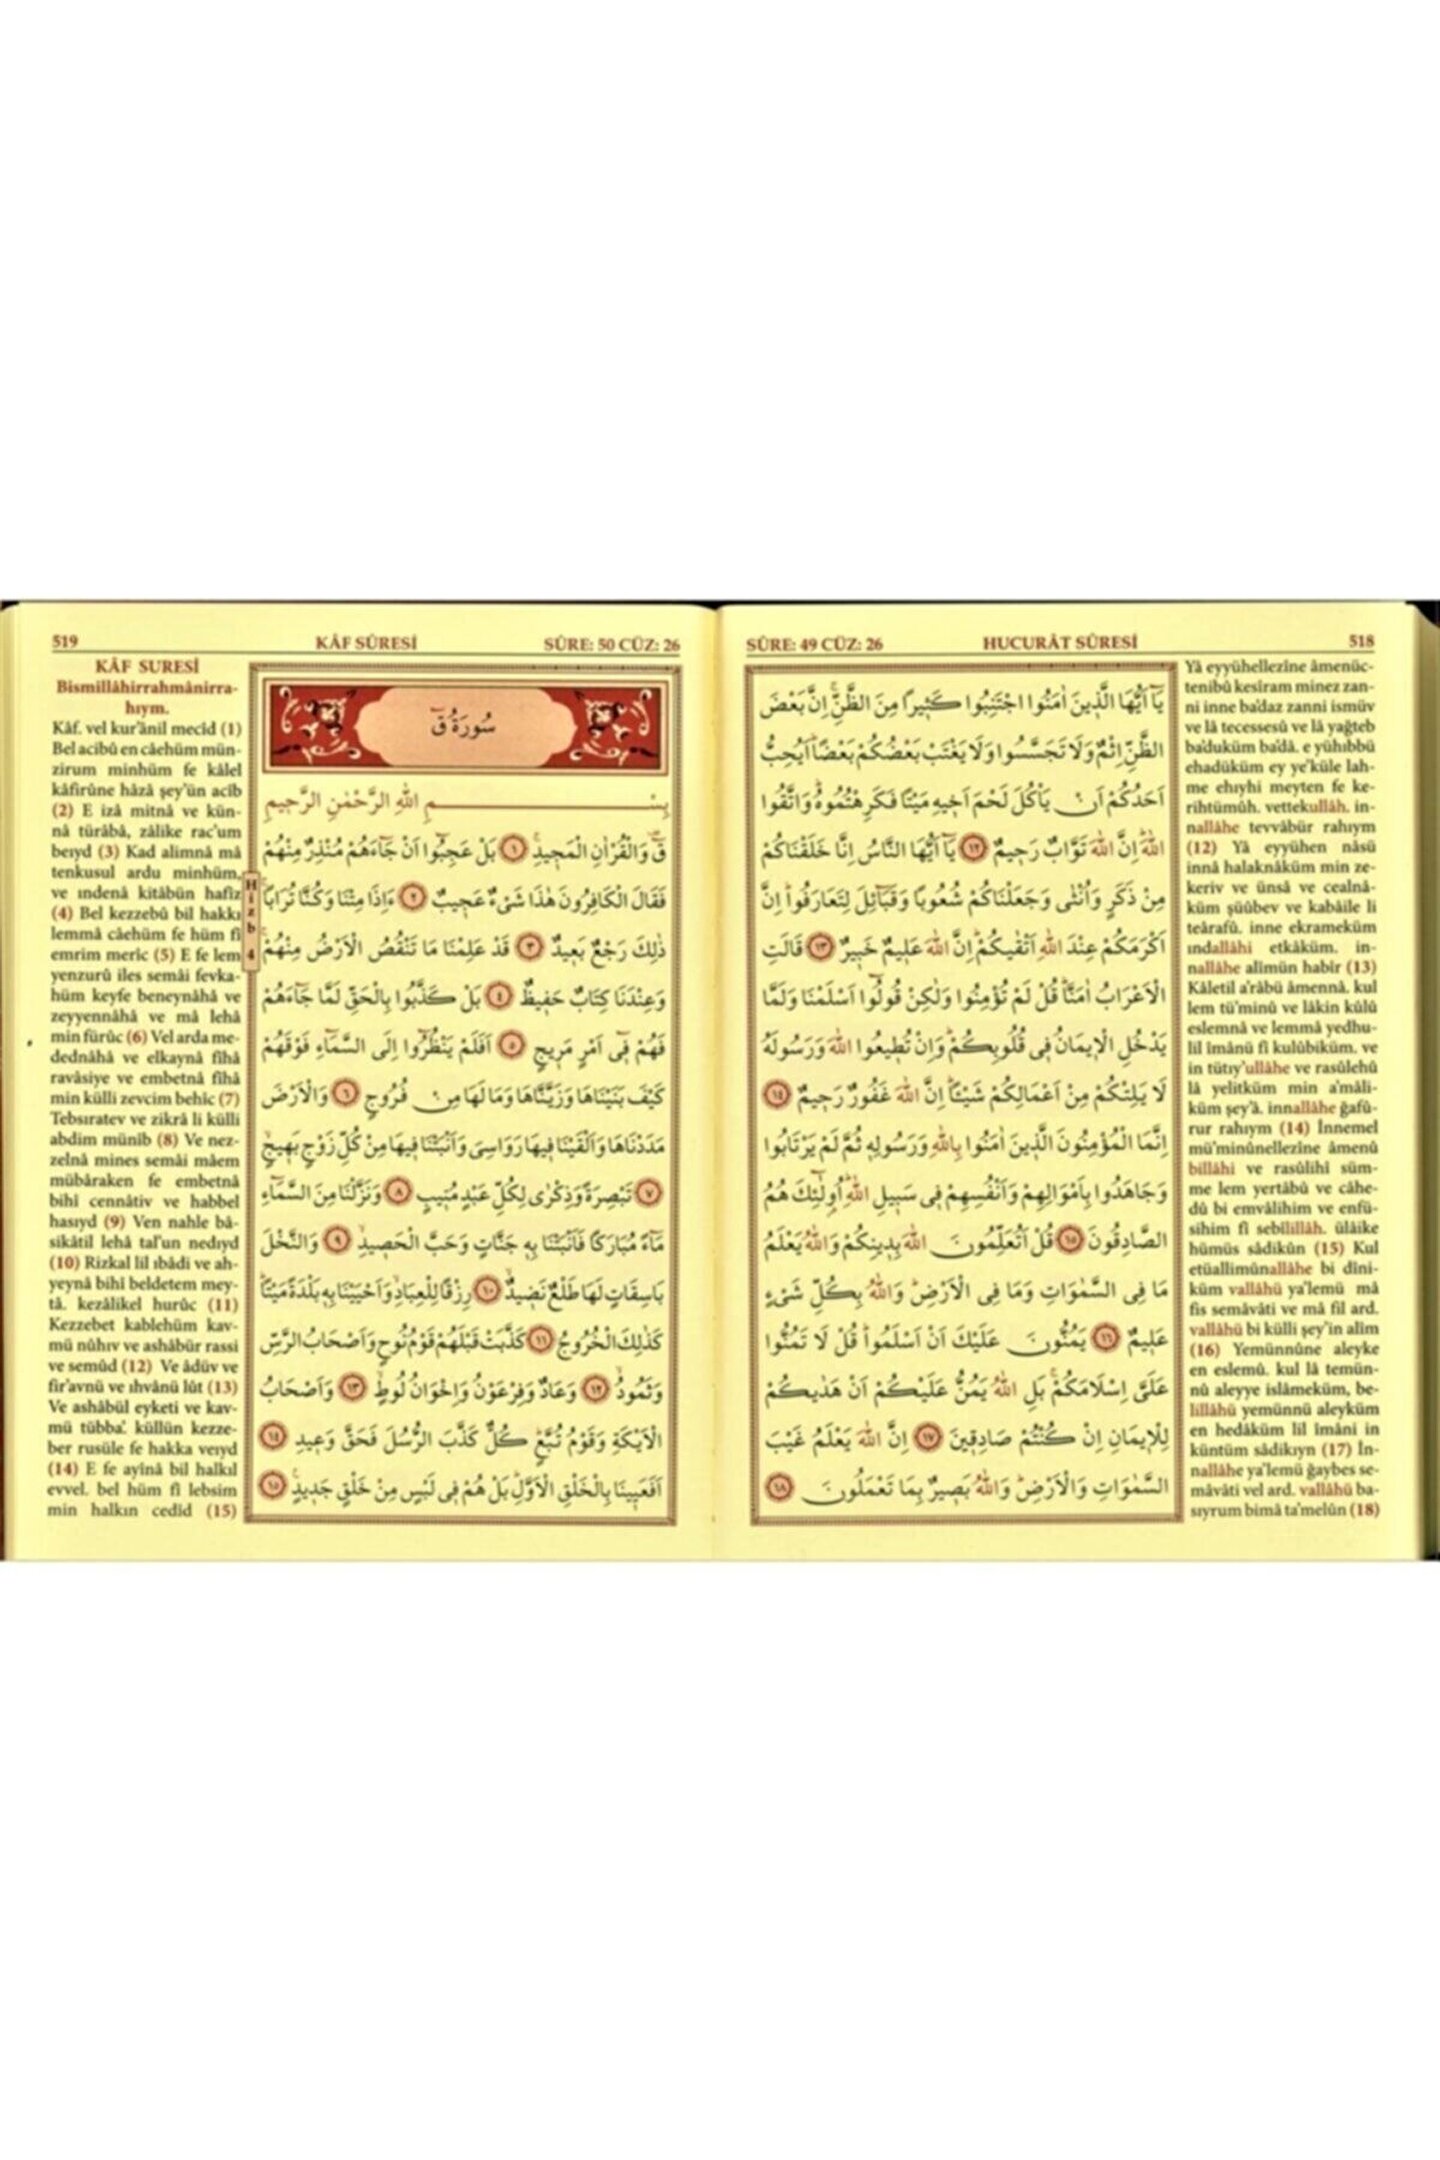 SÛRE: 49 CÜZ: 26 HUCURÂT SÛRESİ 518
يَٓا اَيُّهَا الَّذ۪ينَ اٰمَنُوا اجْتَنِبُوا كَث۪يراً مِنَ الظَّنِّۘ اِنَّ بَعْضَ
الظَّنِّ اِثْمٌ وَلَا تَجَسَّسُوا وَلَا يَغْتَبْ بَعْضُكُمْ بَعْضاًۜ اَيُحِبُّ
اَحَدُكُمْ اَنْ يَأْكُلَ لَحْمَ اَخ۪يهِ مَيْتاً فَكَرِهْتُمُوهُۜ وَاتَّقُوا
اللّٰهَۜ اِنَّ اللّٰهَ تَوَّابٌ رَح۪يمٌ ﴿١٢﴾ يَٓا اَيُّهَا النَّاسُ اِنَّا خَلَقْنَاكُمْ
مِنْ ذَكَرٍ وَاُنْثٰى وَجَعَلْنَاكُمْ شُعُوباً وَقَبَٓائِلَ لِتَعَارَفُواۜ اِنَّ
اَكْرَمَكُمْ عِنْدَ اللّٰهِ اَتْقٰيكُمْۜ اِنَّ اللّٰهَ عَل۪يمٌ خَب۪يرٌ ﴿١٣﴾ قَالَتِ
الْاَعْرَابُ اٰمَنَّاۜ قُلْ لَمْ تُؤْمِنُوا وَلٰكِنْ قُولُٓوا اَسْلَمْنَا وَلَمَّا
يَدْخُلِ الْا۪يمَانُ ف۪ي قُلُوبِكُمْۜ وَاِنْ تُط۪يعُوا اللّٰهَ وَرَسُولَهُ
لَا يَلِتْكُمْ مِنْ اَعْمَالِكُمْ شَيْـٔاًۜ اِنَّ اللّٰهَ غَفُورٌ رَح۪يمٌ ﴿١٤﴾
اِنَّمَا الْمُؤْمِنُونَ الَّذ۪ينَ اٰمَنُوا بِاللّٰهِ وَرَسُولِه۪ ثُمَّ لَمْ يَرْتَابُوا
وَجَاهَدُوا بِاَمْوَالِهِمْ وَاَنْفُسِهِمْ ف۪ي سَب۪يلِ اللّٰهِۜ اُو۬لٰٓئِكَ هُمُ
الصَّادِقُونَ ﴿١٥﴾ قُلْ اَتُعَلِّمُونَ اللّٰهَ بِد۪ينِكُمْ وَاللّٰهُ يَعْلَمُ
مَا فِي السَّمٰوَاتِ وَمَا فِي الْاَرْضِۜ وَاللّٰهُ بِكُلِّ شَيْءٍ
عَل۪يمٌ ﴿١٦﴾ يَمُنُّونَ عَلَيْكَ اَنْ اَسْلَمُواۜ قُلْ لَا تَمُنُّوا
عَلَيَّ اِسْلَامَكُمْۚ بَلِ اللّٰهُ يَمُنُّ عَلَيْكُمْ اَنْ هَدٰيكُمْ
لِلْا۪يمَانِ اِنْ كُنْتُمْ صَادِق۪ينَ ﴿١٧﴾ اِنَّ اللّٰهَ يَعْلَمُ غَيْبَ
السَّمٰوَاتِ وَالْاَرْضِۜ وَاللّٰهُ بَص۪يرٌ بِمَا تَعْمَلُونَ ﴿١٨﴾
Yâ eyyühellezîne âmenüc-
tenibû kesîram minez zan-
ni inne ba'daz zanni ismüv
ve lâ tecessesû ve lâ yağteb
ba'duküm ba'dâ. e yühıbbü
ehadüküm ey ye'küle lah-
me ehıyhi meyten fe ke-
rihtümûh. vettekullâh. in-
nallâhe tevvâbür rahıym
(12) Yâ eyyühen nâsü
innâ halaknâküm min ze-
keriv ve ünsâ ve cealnâ-
küm şüûbev ve kabâile li
teârafû. inne ekrameküm
ındallâhi etkâküm. in-
nallâhe alîmün habîr (13)
Kâletil a'râbü âmennâ. kul
lem tü'minû ve lâkin kûlû
eslemnâ ve lemmâ yedhu-
lil îmânü fî kulûbiküm. ve
in tütıy'ullâhe ve rasûlehû
lâ yelitküm min a'mâli-
küm şey'â. innallâhe ğafû-
rur rahıym (14) İnnemel
mü'minûnellezîne âmenû
billâhi ve rasûlihî süm-
me lem yertâbû ve câhe-
dû bi emvâlihim ve enfü-
sihim fî sebîlillâh. ülâike
hümüs sâdikûn (15) Kul
etüallimûnallâhe bi dîni-
küm vallâhü ya'lemü mâ
fis semâvâti ve mâ fil ard.
vallâhü bi külli şey'in alîm
(16) Yemünnûne aleyke
en eslemû. kul lâ temün-
nû aleyye islâmeküm, be-
lillâhü yemünnü aleyküm
en hedâküm lil îmâni in
küntüm sâdikıyn (17) İn-
nallâhe ya'lemü ğaybes se-
mâvâti vel ard. vallâhü ba-
sıyrum bimâ ta'melûn (18)
519 KÂF SÛRESİ SÛRE: 50 CÜZ: 26
سُورَةُ قٓ
بِسْمِ اللّٰهِ الرَّحْمٰنِ الرَّح۪يمِ
قٓ۠ وَالْقُرْاٰنِ الْمَج۪يدِۚ ﴿١﴾ بَلْ عَجِبُٓوا اَنْ جَٓاءَهُمْ مُنْذِرٌ مِنْهُمْ
فَقَالَ الْكَافِرُونَ هٰذَا شَيْءٌ عَج۪يبٌۚ ﴿٢﴾ ءَاِذَا مِتْنَا وَكُنَّا تُرَاباًۚ
ذٰلِكَ رَجْعٌ بَع۪يدٌ ﴿٣﴾ قَدْ عَلِمْنَا مَا تَنْقُصُ الْاَرْضُ مِنْهُمْۚ
وَعِنْدَنَا كِتَابٌ حَف۪يظٌ ﴿٤﴾ بَلْ كَذَّبُوا بِالْحَقِّ لَمَّا جَٓاءَهُمْ
فَهُمْ ف۪ٓي اَمْرٍ مَر۪يجٍ ﴿٥﴾ اَفَلَمْ يَنْظُرُٓوا اِلَى السَّمَٓاءِ فَوْقَهُمْ
كَيْفَ بَنَيْنَاهَا وَزَيَّنَّاهَا وَمَا لَهَا مِنْ فُرُوجٍ ﴿٦﴾ وَالْاَرْضَ
مَدَدْنَاهَا وَاَلْقَيْنَا ف۪يهَا رَوَاسِيَ وَاَنْبَتْنَا ف۪يهَا مِنْ كُلِّ زَوْجٍ بَه۪يجٍۙ
﴿٧﴾ تَبْصِرَةً وَذِكْرٰى لِكُلِّ عَبْدٍ مُن۪يبٍ ﴿٨﴾ وَنَزَّلْنَا مِنَ السَّمَٓاءِ
مَٓاءً مُبَارَكاً فَاَنْبَتْنَا بِه۪ جَنَّاتٍ وَحَبَّ الْحَص۪يدِۙ ﴿٩﴾ وَالنَّخْلَ
بَاسِقَاتٍ لَهَا طَلْعٌ نَض۪يدٌۙ ﴿١٠﴾ رِزْقاً لِلْعِبَادِۙ وَاَحْيَيْنَا بِه۪ بَلْدَةً مَيْتاًۜ
كَذٰلِكَ الْخُرُوجُ ﴿١١﴾ كَذَّبَتْ قَبْلَهُمْ قَوْمُ نُوحٍ وَاَصْحَابُ الرَّسِّ
وَثَمُودُۙ ﴿١٢﴾ وَعَادٌ وَفِرْعَوْنُ وَاِخْوَانُ لُوطٍۙ ﴿١٣﴾ وَاَصْحَابُ
الْاَيْكَةِ وَقَوْمُ تُبَّعٍۜ كُلٌّ كَذَّبَ الرُّسُلَ فَحَقَّ وَع۪يدِ ﴿١٤﴾
اَفَعَي۪ينَا بِالْخَلْقِ الْاَوَّلِۜ بَلْ هُمْ ف۪ي لَبْسٍ مِنْ خَلْقٍ جَد۪يدٍ۟ ﴿١٥﴾
Hizb 4
KÂF SURESİ
Bismillâhirrahmânirra-
hıym.
Kâf. vel kur'ânil mecîd (1)
Bel acibû en câehüm mün-
zirum minhüm fe kâlel
kâfirûne hâzâ şey'ün acîb
(2) E izâ mitnâ ve kün-
nâ türâbâ, zâlike rac'um
beıyd (3) Kad alimnâ mâ
tenkusul ardu minhüm,
ve ındenâ kitâbün hafîz
(4) Bel kezzebû bil hakkı
lemmâ câehüm fe hüm fî
emrim merîc (5) E fe lem
yenzurû iles semâi fevka-
hüm keyfe beneynâhâ ve
zeyyennâhâ ve mâ lehâ
min fürûc (6) Vel arda me-
dednâhâ ve elkaynâ fîhâ
ravâsiye ve embetnâ fîhâ
min külli zevcim behîc (7)
Tebsıratev ve zikrâ li külli
abdim münîb (8) Ve nez-
zelnâ mines semâi mâem
mübâraken fe embetnâ
bihî cennâtiv ve habbel
hasıyd (9) Ven nahle bâ-
sikâtil lehâ tal'un nedıyd
(10) Rizkal lil ıbâdi ve ah-
yeynâ bihî beldetem mey-
tâ. kezâlikel hurûc (11)
Kezzebet kablehüm kav-
mü nûhıv ve ashâbür rassi
ve semûd (12) Ve âdüv ve
fir'avnü ve ıhvânü lût (13)
Ve ashâbül eyketi ve kav-
mü tübba'. küllün kezze-
ber rusüle fe hakka veıyd
(14) E fe ayînâ bil halkıl
evvel. bel hüm fî lebsim
min halkın cedîd (15)